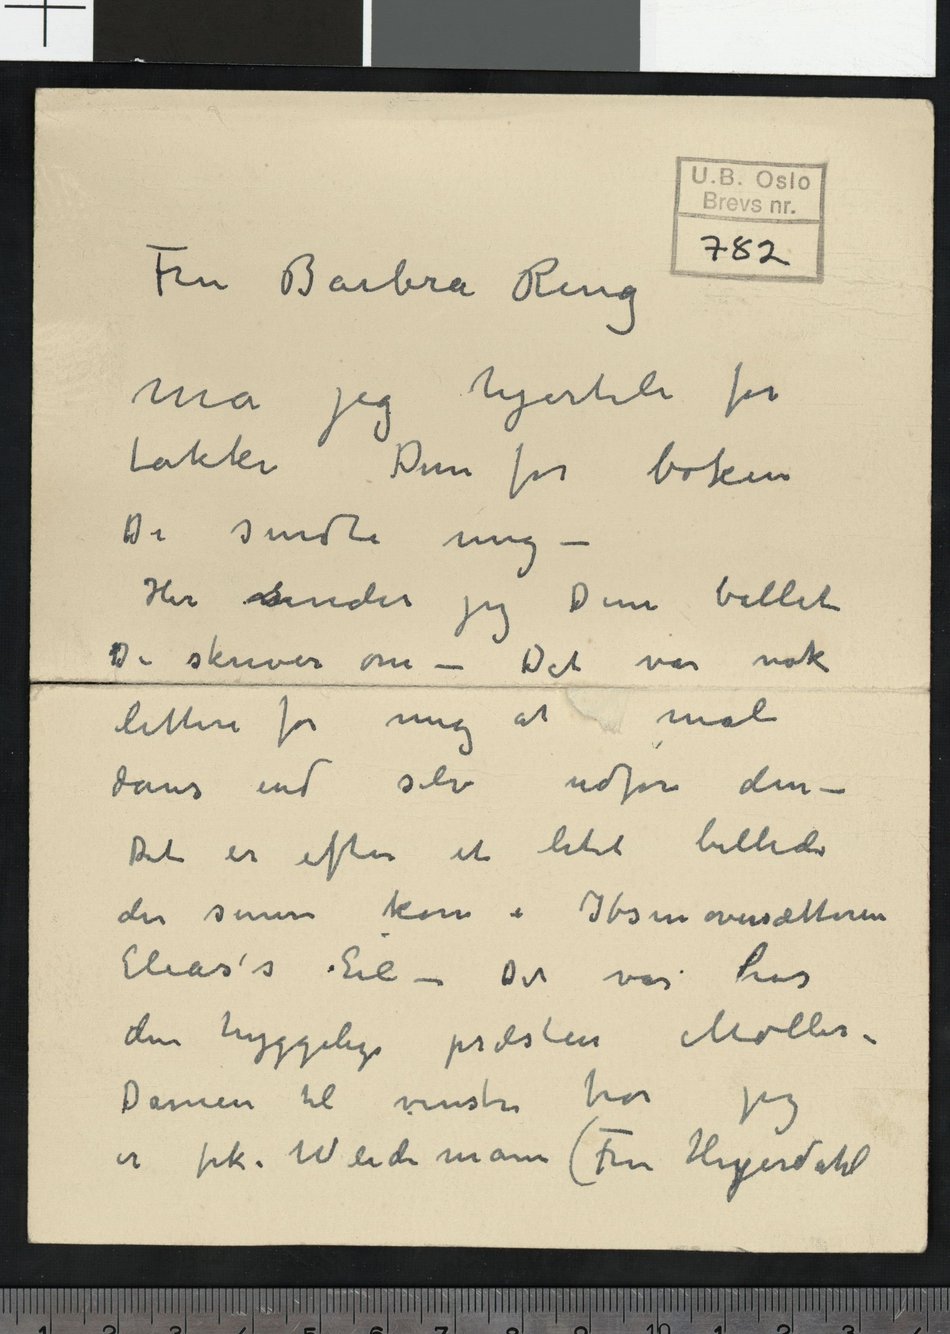 U.B. Oslo
Brevs nr.
782
Fru Barbra Ring
Må jeg hjerteli for
takke Dem for boken
De sendte mig —
Her sender jeg Dem billet
De skriver om — Det var nok
lettere for mig at male
dans end selv udføre den —
Det er efter et litet billede
der senere kom i Ibsenoversætteren
Elias's Eie — Det var hos
den hyggelige præsten Møller.
Damen til venstre tror jeg
er frk. Weidemann (Fru Heyerdahl
1 2 3 4 5 6 7 8 9 10 1 2 3 4